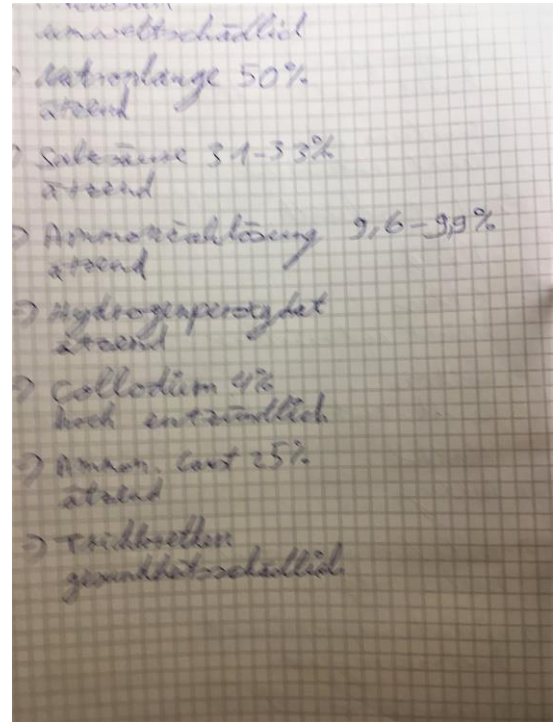 umweltschädlich
Natronlauge 50%
ätzend
Salzsäure 31-33%
ätzend
Ammoniaklösung 9,6-9,9%
ätzend
ätzend
Collodium 4%
hoch entzündlich
Ammon. 25%
ätzend
gesundheitsschädlich